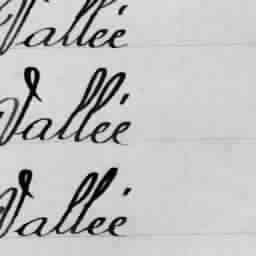 Vallée
Vallée
Vallée